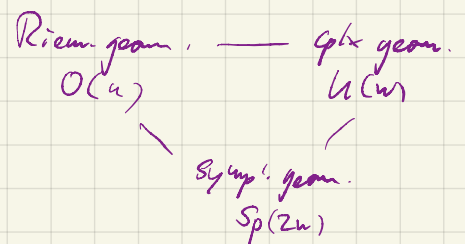 Riem. geom. — cplx geom.
O(n) U(n)
Sympl. geom.
Sp(2n)